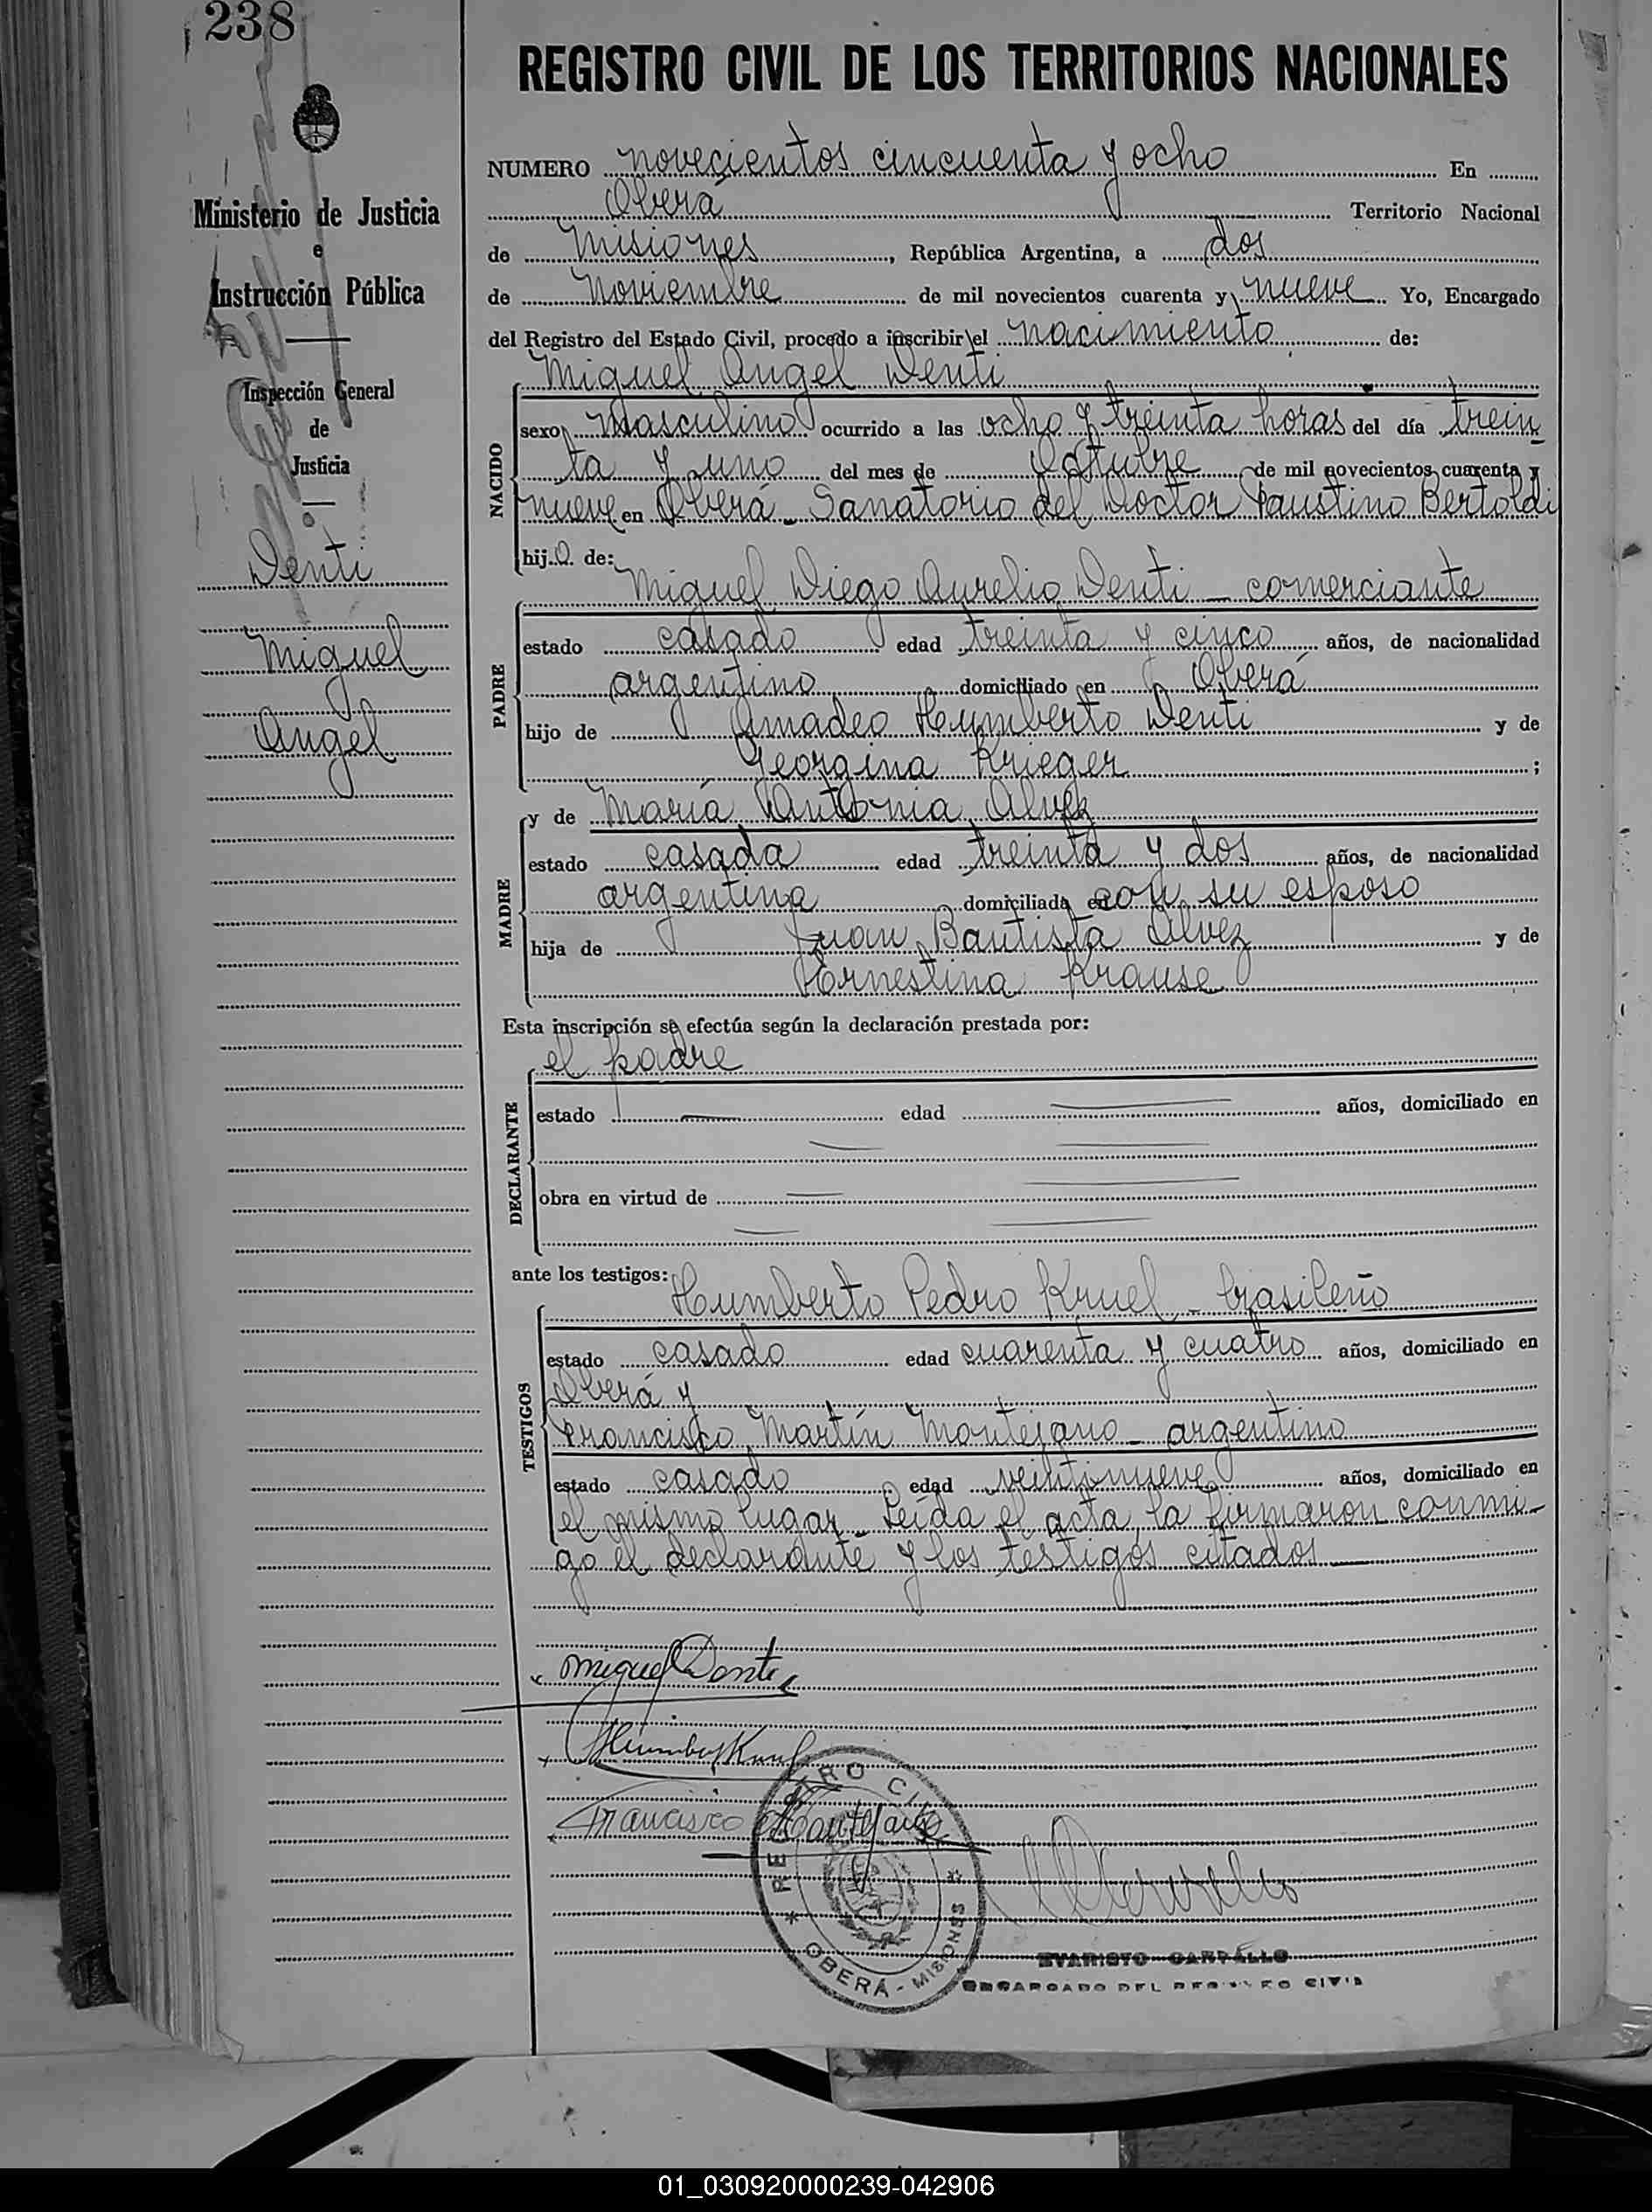 238
REGISTRO CIVIL DE LOS TERRITORIOS NACIONALES
Ministerio de Justicia
e
Instrucción Pública
Inspección General
de
Justicia
Denti
Miguel
Angel
NUMERO novecientos cincuenta y ocho En
Oberá Territorio Nacional
de Misiones, República Argentina, a dos
de Noviembre de mil novecientos cuarenta y nueve Yo, Encargado
del Registro del Estado Civil, procedo a inscribir el nacimiento de:
Miguel Angel Denti
NACIDO
sexo Masculino ocurrido a las ocho y treinta horas del día trein
ta y uno del mes de Octubre de mil novecientos cuarenta y
nueve en Oberá - Sanatorio del Doctor Faustino Bertoldi
hijo de:
Miguel Diego Aurelio Denti - comerciante
PADRE
estado casado edad treinta y cinco años, de nacionalidad
argentino domiciliado en Oberá
hijo de Amadeo Humberto Denti y de
Georgina Krieger ;
MADRE
y de María Antonia Alvez
estado casada edad treinta y dos años, de nacionalidad
argentina domiciliada en con su esposo
hija de Juan Bautista Alvez y de
Ernestina Krause
Esta inscripción se efectúa según la declaración prestada por:
el padre
DECLARANTE
estado edad años, domiciliado en
obra en virtud de
ante los testigos:
Humberto Pedro Kruel - brasileño
TESTIGOS
estado casado edad cuarenta y cuatro años, domiciliado en
Oberá y
Francisco Martín Montejano - argentino
estado casado edad veintinueve años, domiciliado en
el mismo lugar - Leída el acta, la firmaron conmi-
go el declarante y los testigos citados
Miguel Denti
Humberto Kruel
Francisco Montejano
REGISTRO CIVIL
OBERÁ - MISIONES
EVARISTO CARBALLO
ENCARGADO DEL REGISTRO CIVIL
01_030920000239-042906